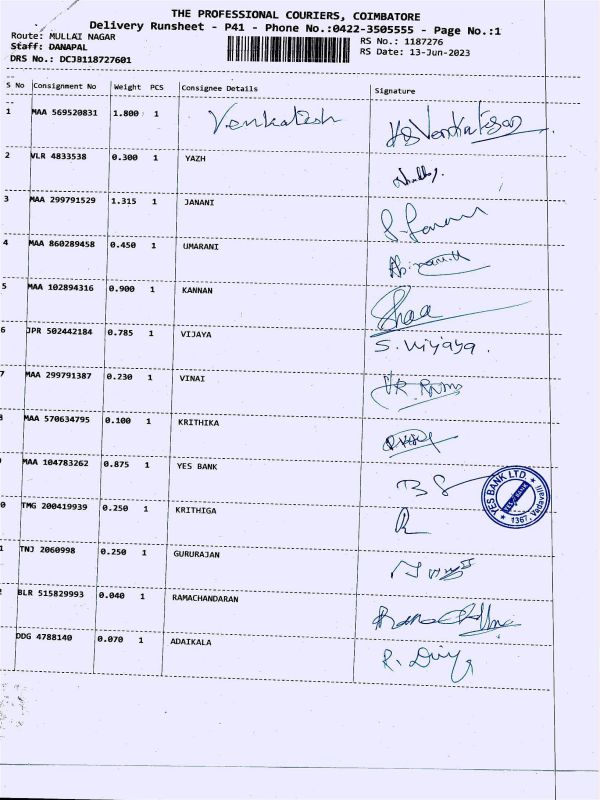 THE PROFESSIONAL COURIERS, COIMBATORE
Delivery Runsheet - P41 - Phone No.:0422-3505555 - Page No.:1
Route: MULLAI NAGAR RS No.: 1187276
Staff: DANAPAL RS Date: 13-Jun-2023
DRS No.: DCJB118727601
S No Consignment No Weight PCS Consignee Details Signature
1 MAA 569520831 1.800 1 Venkatesh
2 VLR 4833538 0.300 1 YAZH
3 MAA 299791529 1.315 1 JANANI
4 MAA 860289458 0.450 1 UMARANI
5 MAA 102894316 0.900 1 KANNAN
6 JPR 502442184 0.785 1 VIJAYA S. Vijaya.
7 MAA 299791387 0.230 1 VINAI
MAA 570634795 0.100 1 KRITHIKA
MAA 104783262 0.875 1 YES BANK
YES BANK LTD.
0 TMG 200419939 0.250 1 KRITHIGA
1 TNJ 2060998 0.250 1 GURURAJAN
BLR 515829993 0.040 1 RAMACHANDARAN
DDG 4788140 0.070 1 ADAIKALA